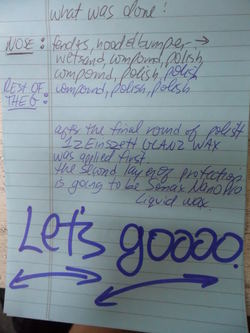 what was done:
NOSE: fenders, hood & bumper, →
wetsand, compound, polish
compound, polish, polish
REST OF THE G: compound, polish, polish
after the final round of polish
1Z Einszett GLANZ WAX
was applied first.
the second layer of protection
is going to be Sonax NanoPro
Liquid wax.
Let's goooo.